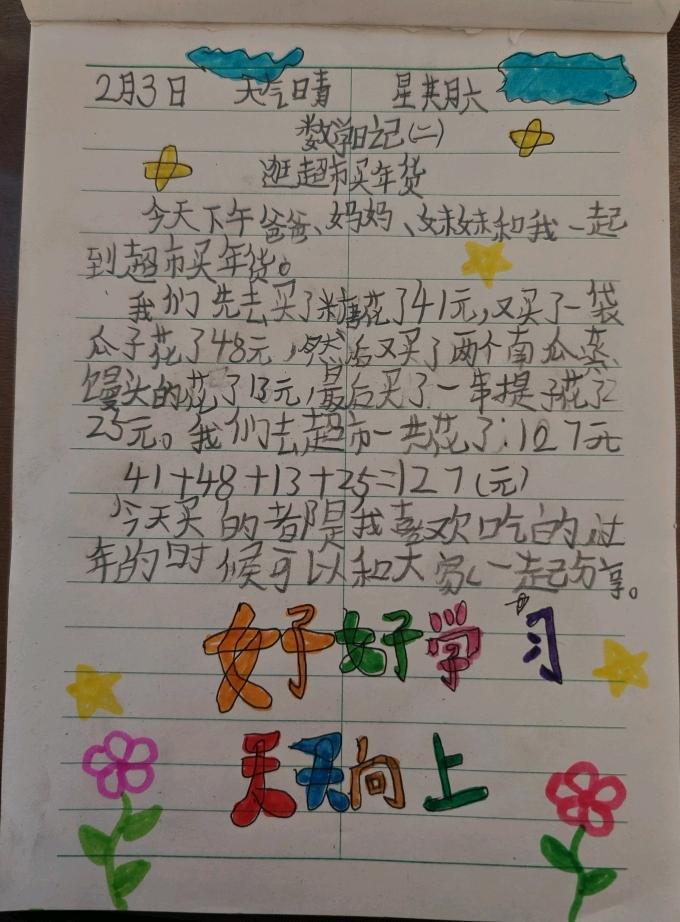 2月3日 天气晴 星期六
数学日记(二)
逛超市买年货
今天下午爸爸、妈妈、妹妹和我一起
到超市买年货。
我们先去买了糖花了41元,又买了一袋
瓜子花了48元,然后又买了两个南瓜蒸、
馒头的花了13元,最后买了一串提子花了
25元。我们去超市一共花了:127元
41+48+13+25=127(元)
今天买的者都是我喜欢吃的,过
年的时候可以和大家一起分享。
好好学习
天天向上